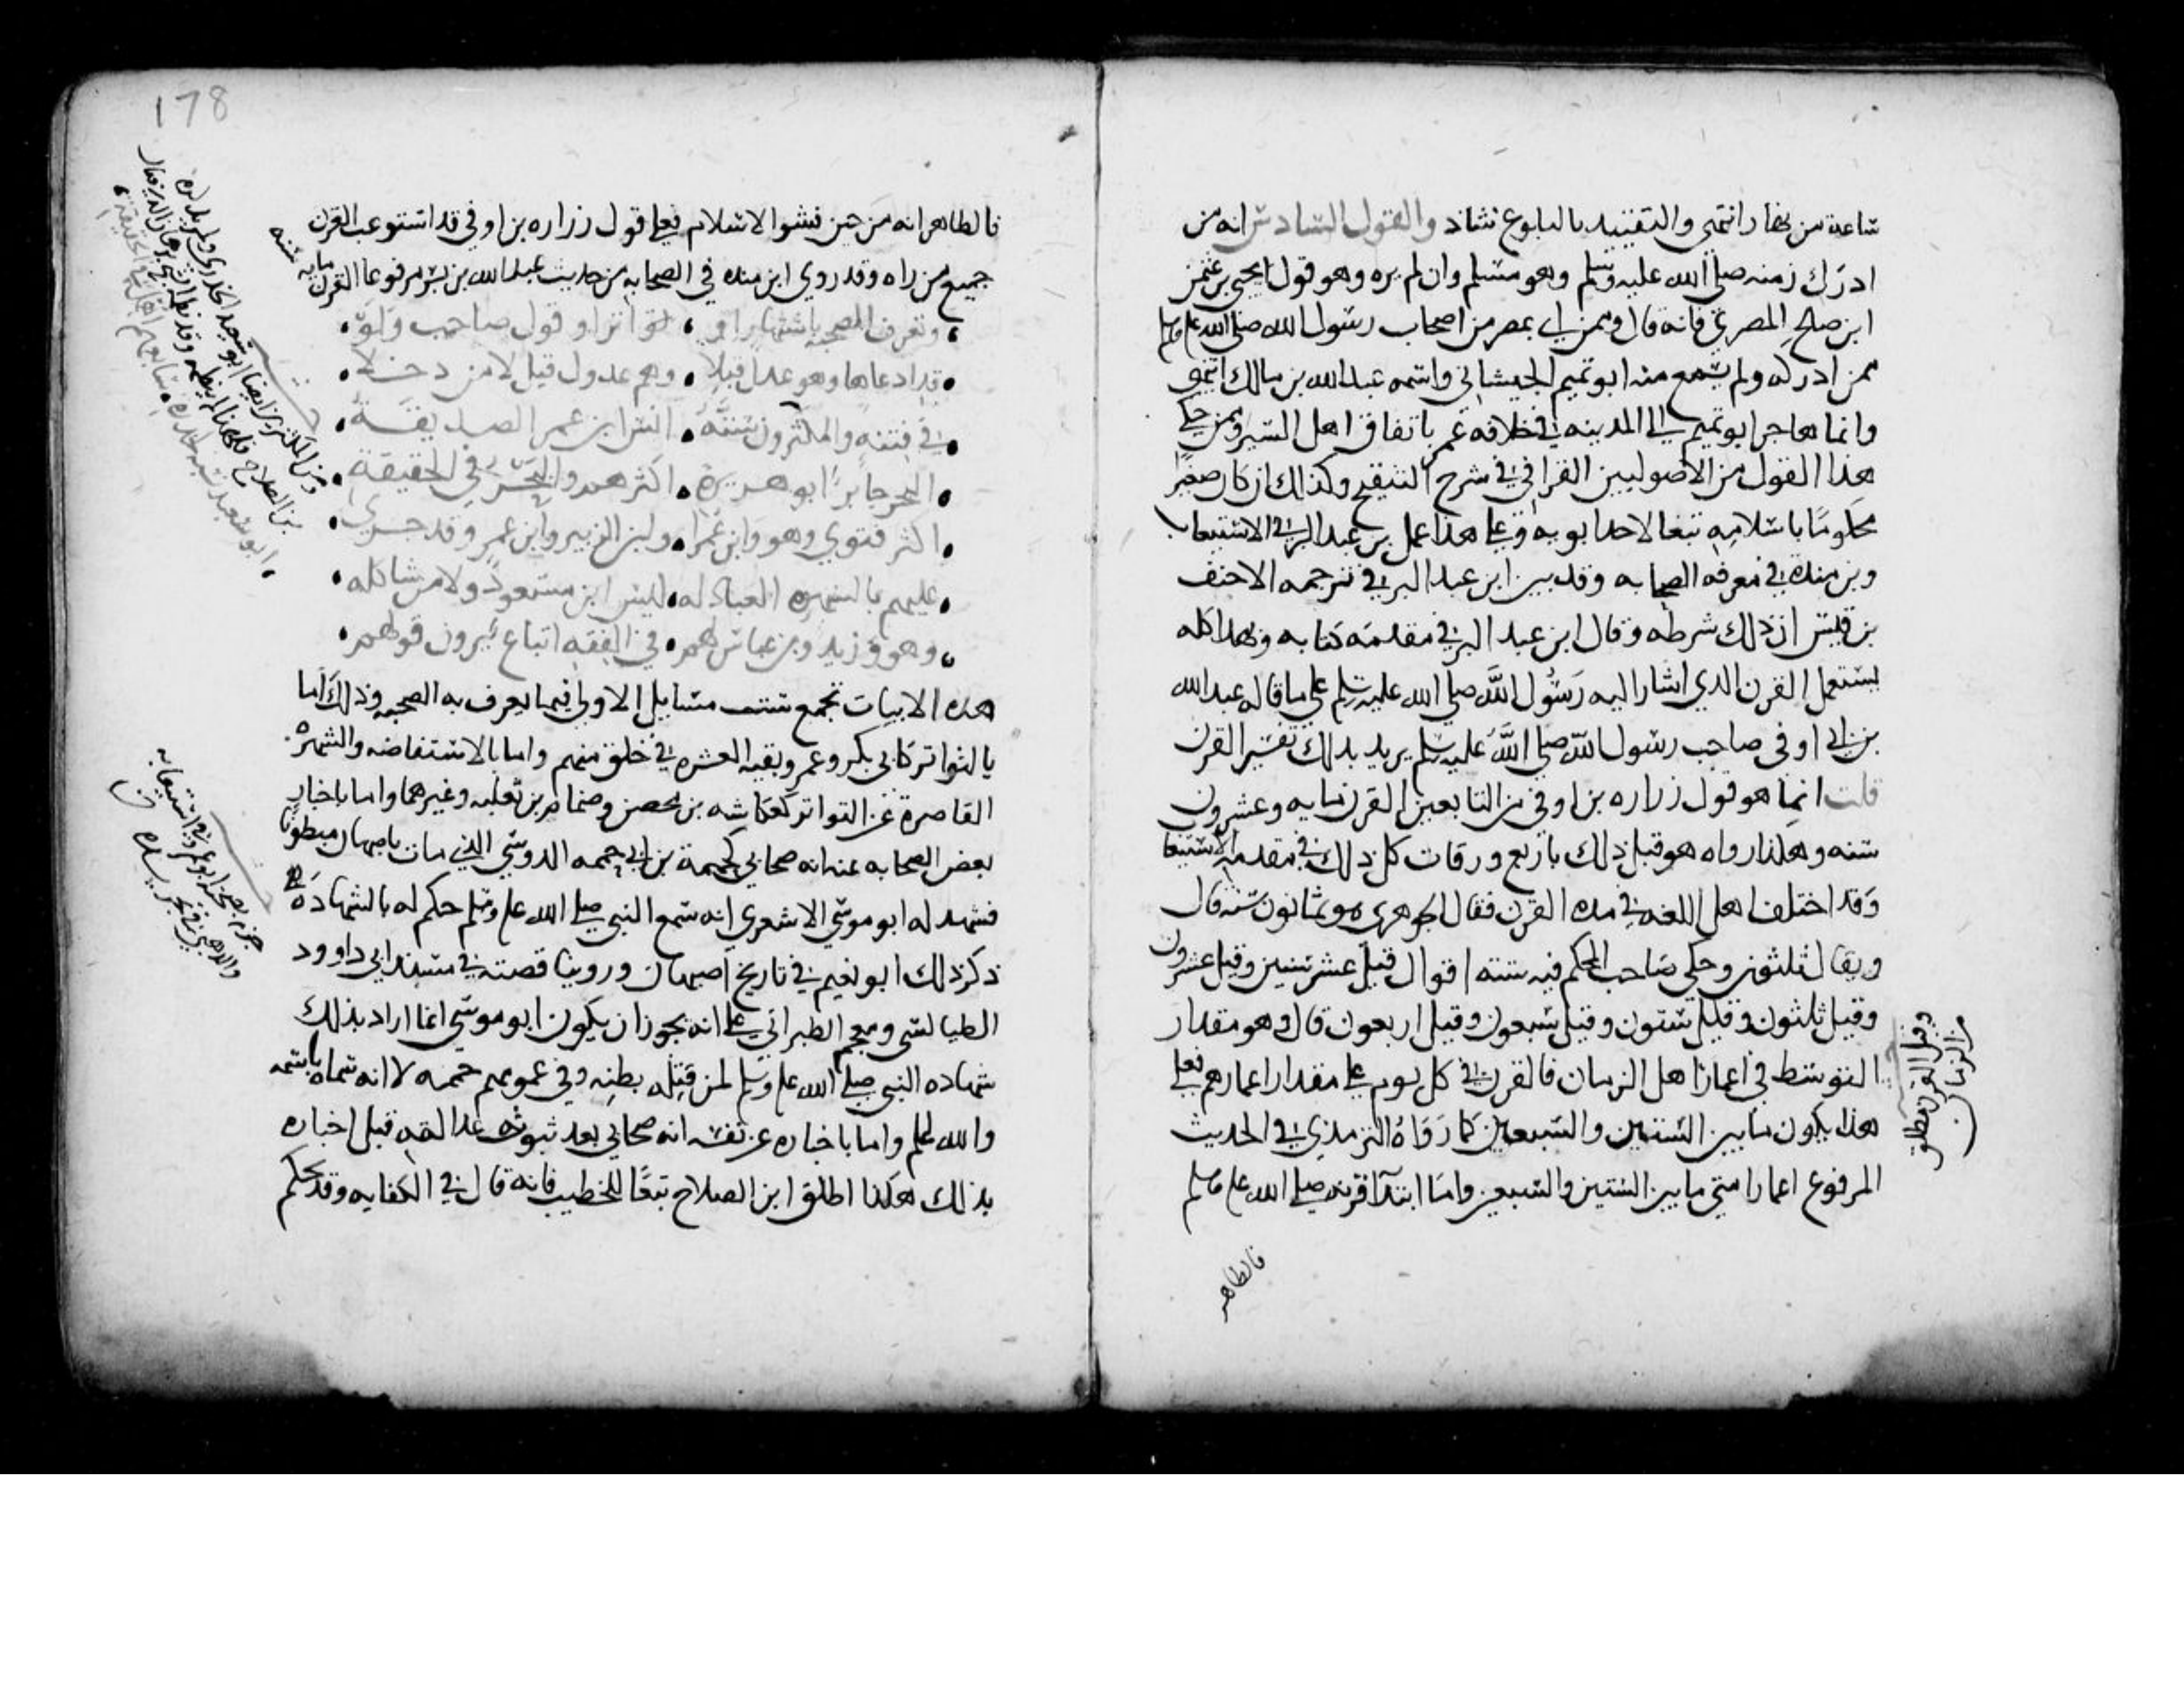 ساعة من نهار انتهى والتقييد بالبلوغ شاذ والقول السادس انه من
ادرك زمنه صلى الله عليه وسلم وهو مسلم وان لم يره وهو قول يحيى بن عثمن
ابن صلح المصري فانه قال وممن اي بمصر من اصحاب رسول الله صلى الله علم وسلم
ممن ادركه ولم يسمع منه ابو تميم الجيشاني واسمه عبد الله بن مالك انتهى
وانما هاجر ابو تميم الى المدينه في خلافه عمر باتفاق اهل السير وممن حكى
هذا القول من الاصوليين القرافي في شرح التنقيح وكذلك ان كان صغيرا
محكوما باسلامه تبعا لاحد ابويه وعلى هذا عمل بن عبد البر في الاستيعاب
وبن منده في معرفه الصحابه وقد بين ابن عبد البر في ترجمه الاحنف
بن قيس ان ذلك شرطه وقال ابن عبد البر في مقدمه كتابه وبهذا كله
يستعمل القرن الذي اشار اليه رسول الله صلى الله عليه وسلم على ما قاله عبد الله
بن ابي اوفى صاحب رسول الله صلى الله عليه وسلم يريد بذلك تفسير القرن
قلت انما هو قول زراره بن اوفى من التابعين القرن مايه وعشرون
سنه وهكذا رواه هو قبل ذلك باربع ورقات كل ذلك في مقدمه الاستيعاب
وقد اختلف اهل اللغه في مده القرن فقال الجوهري هو ثمانون سنه قال
ويقال ثلثون وحكى صاحب المحكم فيه سته اقوال قيل عشر سنين وقيل عشرون
وقيل ثلثون وقيل ستون وقيل سبعون وقيل اربعون قال وهو مقدار
التوسط في اعمار اهل الزمان فالقرن في كل يوم على مقدار اعمارهم فعلى
هذا يكون ما بين الستين والسبعين كما رواه الترمذي في الحديث
المرفوع اعمار امتي ما بين الستين والسبعين واما ابتدآ قرنه صلى الله علم وسلم
فالظاهر
وقيل القرن مطلق
من الزمان
178
فالظاهر انه من حين فشوا الاسلام فعلى قول زراره بن اوفى قد استوعب القرن
جميع من راه وقد روى ابن منده في الصحابه من حديث عبد الله بن بسر مرفوعا القرن
مايه سنه
وتعرف الصحبة باشتهار او • تواتر او قول صاحب ولو •
• قد ادعاها وهو عدل قبلا • وهم عدول قيل لا من دخلا •
• في فتنه والمكثرون ستة • انس ابن عمر الصديقة •
• البحر جابر ابو هريرة • اكثرهم والبحر في الحقيقة •
• اكثر فتوى وهو وابن عمرا • وابن الزبير وابن عمرو قد جرى •
• عليهم بالشهره العبادله • ليس ابن مسعود ولا من شاكله •
• وهو وزيد وبن عباس لهم • في الفقه اتباع يرون قولهم •
هذه الابيات تجمع ست مسايل الاولى فيما يعرف به الصحبه وذلك اما
بالتواتر كابي بكر وعمر وبقيه العشره في خلق منهم واما بالاستفاضه والشهره
القاصرة عن التواتر كعكاشه بن محصن وضمام بن ثعلبه وغيرهما واما باخبار
بعض الصحابه عنه انه صحابي كحممة بن ابي حممه الدوسي الذي مات باصبهان مبطونا
فشهد له ابو موسى الاشعري انه سمع النبي صلى الله علم وسلم حكم له بالشهادة
ذكر ذلك ابو نعيم في تاريخ اصبهان وروينا قصته في مسند ابي داوود
الطيالسي ومعجم الطبراني على انه يجوز ان يكون ابو موسى انما اراد بذلك
شهاده النبي صلى الله علم وسلم لمن قتله بطنه وفي عمومهم حممه لا انه سماه باسمه
والله اعلم واما باخباره عن نفسه انه صحابي بعد ثبوت عدالته قبل اخباره
بذلك هكذا اطلق ابن الصلاح تبعا للخطيب فانه قال في الكفايه وقد يحكم
ومن المكثرين ايضا ابو سعيد الخدري